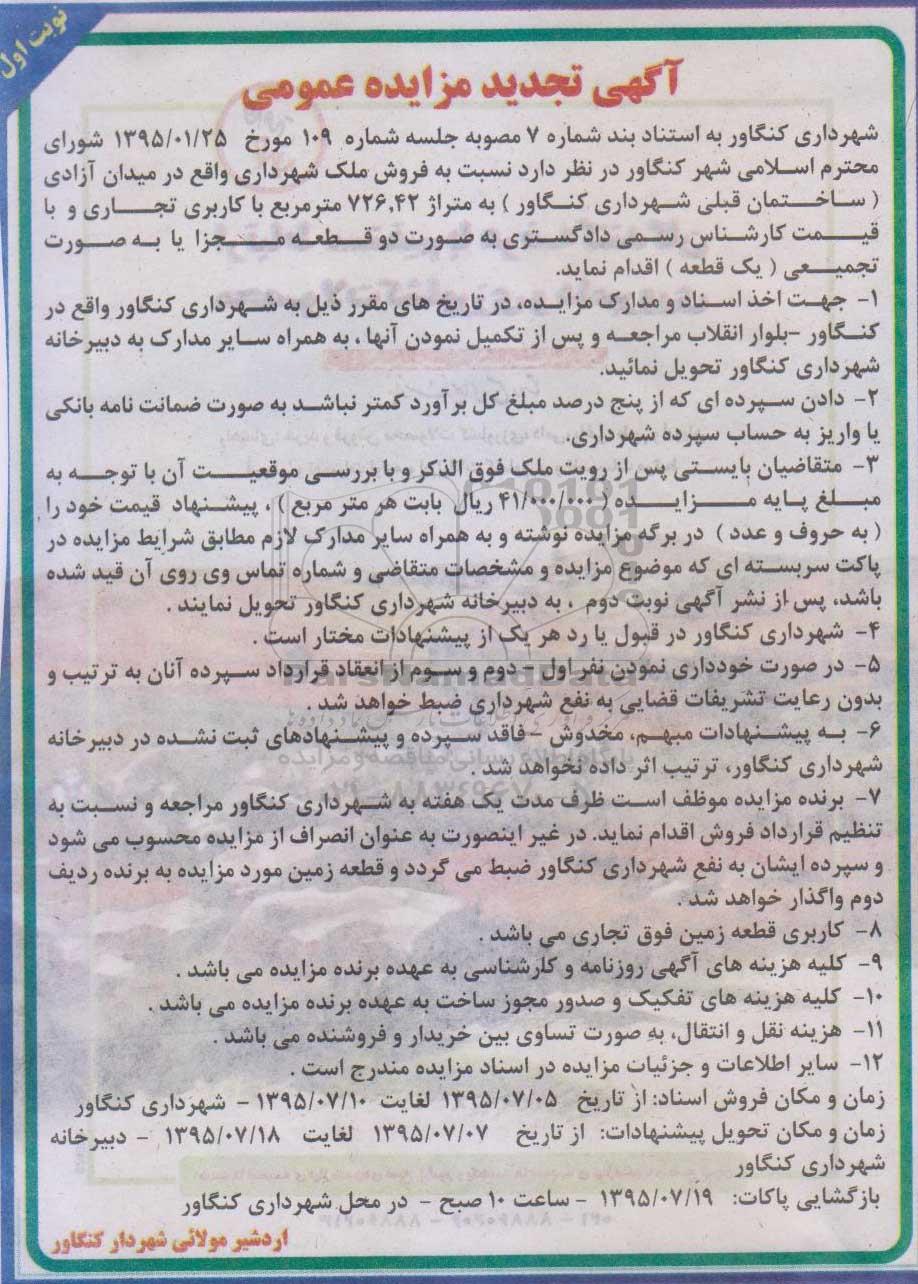 نوبت اول
آگهی تجدید مزایده عمومی
شهرداری کنگاور به استناد بند شماره ۷ مصوبه جلسه شماره ۱۰۹ مورخ ۱۳۹۵/۰۱/۲۵ شورای
محترم اسلامی شهر کنگاور در نظر دارد نسبت به فروش ملک شهرداری واقع در میدان آزادی
( ساختمان قبلی شهرداری کنگاور ) به متراژ ۷۲۶,۴۲ مترمربع با کاربری تجاری و با
قیمت کارشناس رسمی دادگستری به صورت دو قطعه مجزا یا به صورت
تجمیعی ( یک قطعه ) اقدام نماید.
۱- جهت اخذ اسناد و مدارک مزایده، در تاریخ های مقرر ذیل به شهرداری کنگاور واقع در
کنگاور -بلوار انقلاب مراجعه و پس از تکمیل نمودن آنها ، به همراه سایر مدارک به دبیرخانه
شهرداری کنگاور تحویل نمائید.
۲- دادن سپرده ای که از پنج درصد مبلغ کل برآورد کمتر نباشد به صورت ضمانت نامه بانکی
یا واریز به حساب سپرده شهرداری.
۳- متقاضیان بایستی پس از رویت ملک فوق الذکر و با بررسی موقعیت آن با توجه به
مبلغ پایه مزایده ( ۴۱/۰۰۰/۰۰۰ ریال بابت هر متر مربع ) ، پیشنهاد قیمت خود را
( به حروف و عدد ) در برگه مزایده نوشته و به همراه سایر مدارک لازم مطابق شرایط مزایده در
پاکت سربسته ای که موضوع مزایده و مشخصات متقاضی و شماره تماس وی روی آن قید شده
باشد، پس از نشر آگهی نوبت دوم ، به دبیرخانه شهرداری کنگاور تحویل نمایند .
۴- شهرداری کنگاور در قبول یا رد هر یک از پیشنهادات مختار است .
۵- در صورت خودداری نمودن نفر اول - دوم و سوم از انعقاد قرارداد سپرده آنان به ترتیب و
بدون رعایت تشریفات قضایی به نفع شهرداری ضبط خواهد شد .
۶- به پیشنهادات مبهم، مخدوش - فاقد سپرده و پیشنهادهای ثبت نشده در دبیرخانه
شهرداری کنگاور، ترتیب اثر داده نخواهد شد .
۷- برنده مزایده موظف است ظرف مدت یک هفته به شهرداری کنگاور مراجعه و نسبت به
تنظیم قرارداد فروش اقدام نماید. در غیر اینصورت به عنوان انصراف از مزایده محسوب می شود
و سپرده ایشان به نفع شهرداری کنگاور ضبط می گردد و قطعه زمین مورد مزایده به برنده ردیف
دوم واگذار خواهد شد .
۸- کاربری قطعه زمین فوق تجاری می باشد .
۹- کلیه هزینه های آگهی روزنامه و کارشناسی به عهده برنده مزایده می باشد .
۱۰- کلیه هزینه های تفکیک و صدور مجوز ساخت به عهده برنده مزایده می باشد .
۱۱- هزینه نقل و انتقال، به صورت تساوی بین خریدار و فروشنده می باشد .
۱۲- سایر اطلاعات و جزئیات مزایده در اسناد مزایده مندرج است .
زمان و مکان فروش اسناد: از تاریخ ۱۳۹۵/۰۷/۰۵ لغایت ۱۳۹۵/۰۷/۱۰ - شهرداری کنگاور
زمان و مکان تحویل پیشنهادات: از تاریخ ۱۳۹۵/۰۷/۰۷ لغایت ۱۳۹۵/۰۷/۱۸ - دبیرخانه
شهرداری کنگاور
بازگشایی پاکات: ۱۳۹۵/۰۷/۱۹ - ساعت ۱۰ صبح - در محل شهرداری کنگاور
اردشیر مولائی شهردار کنگاور